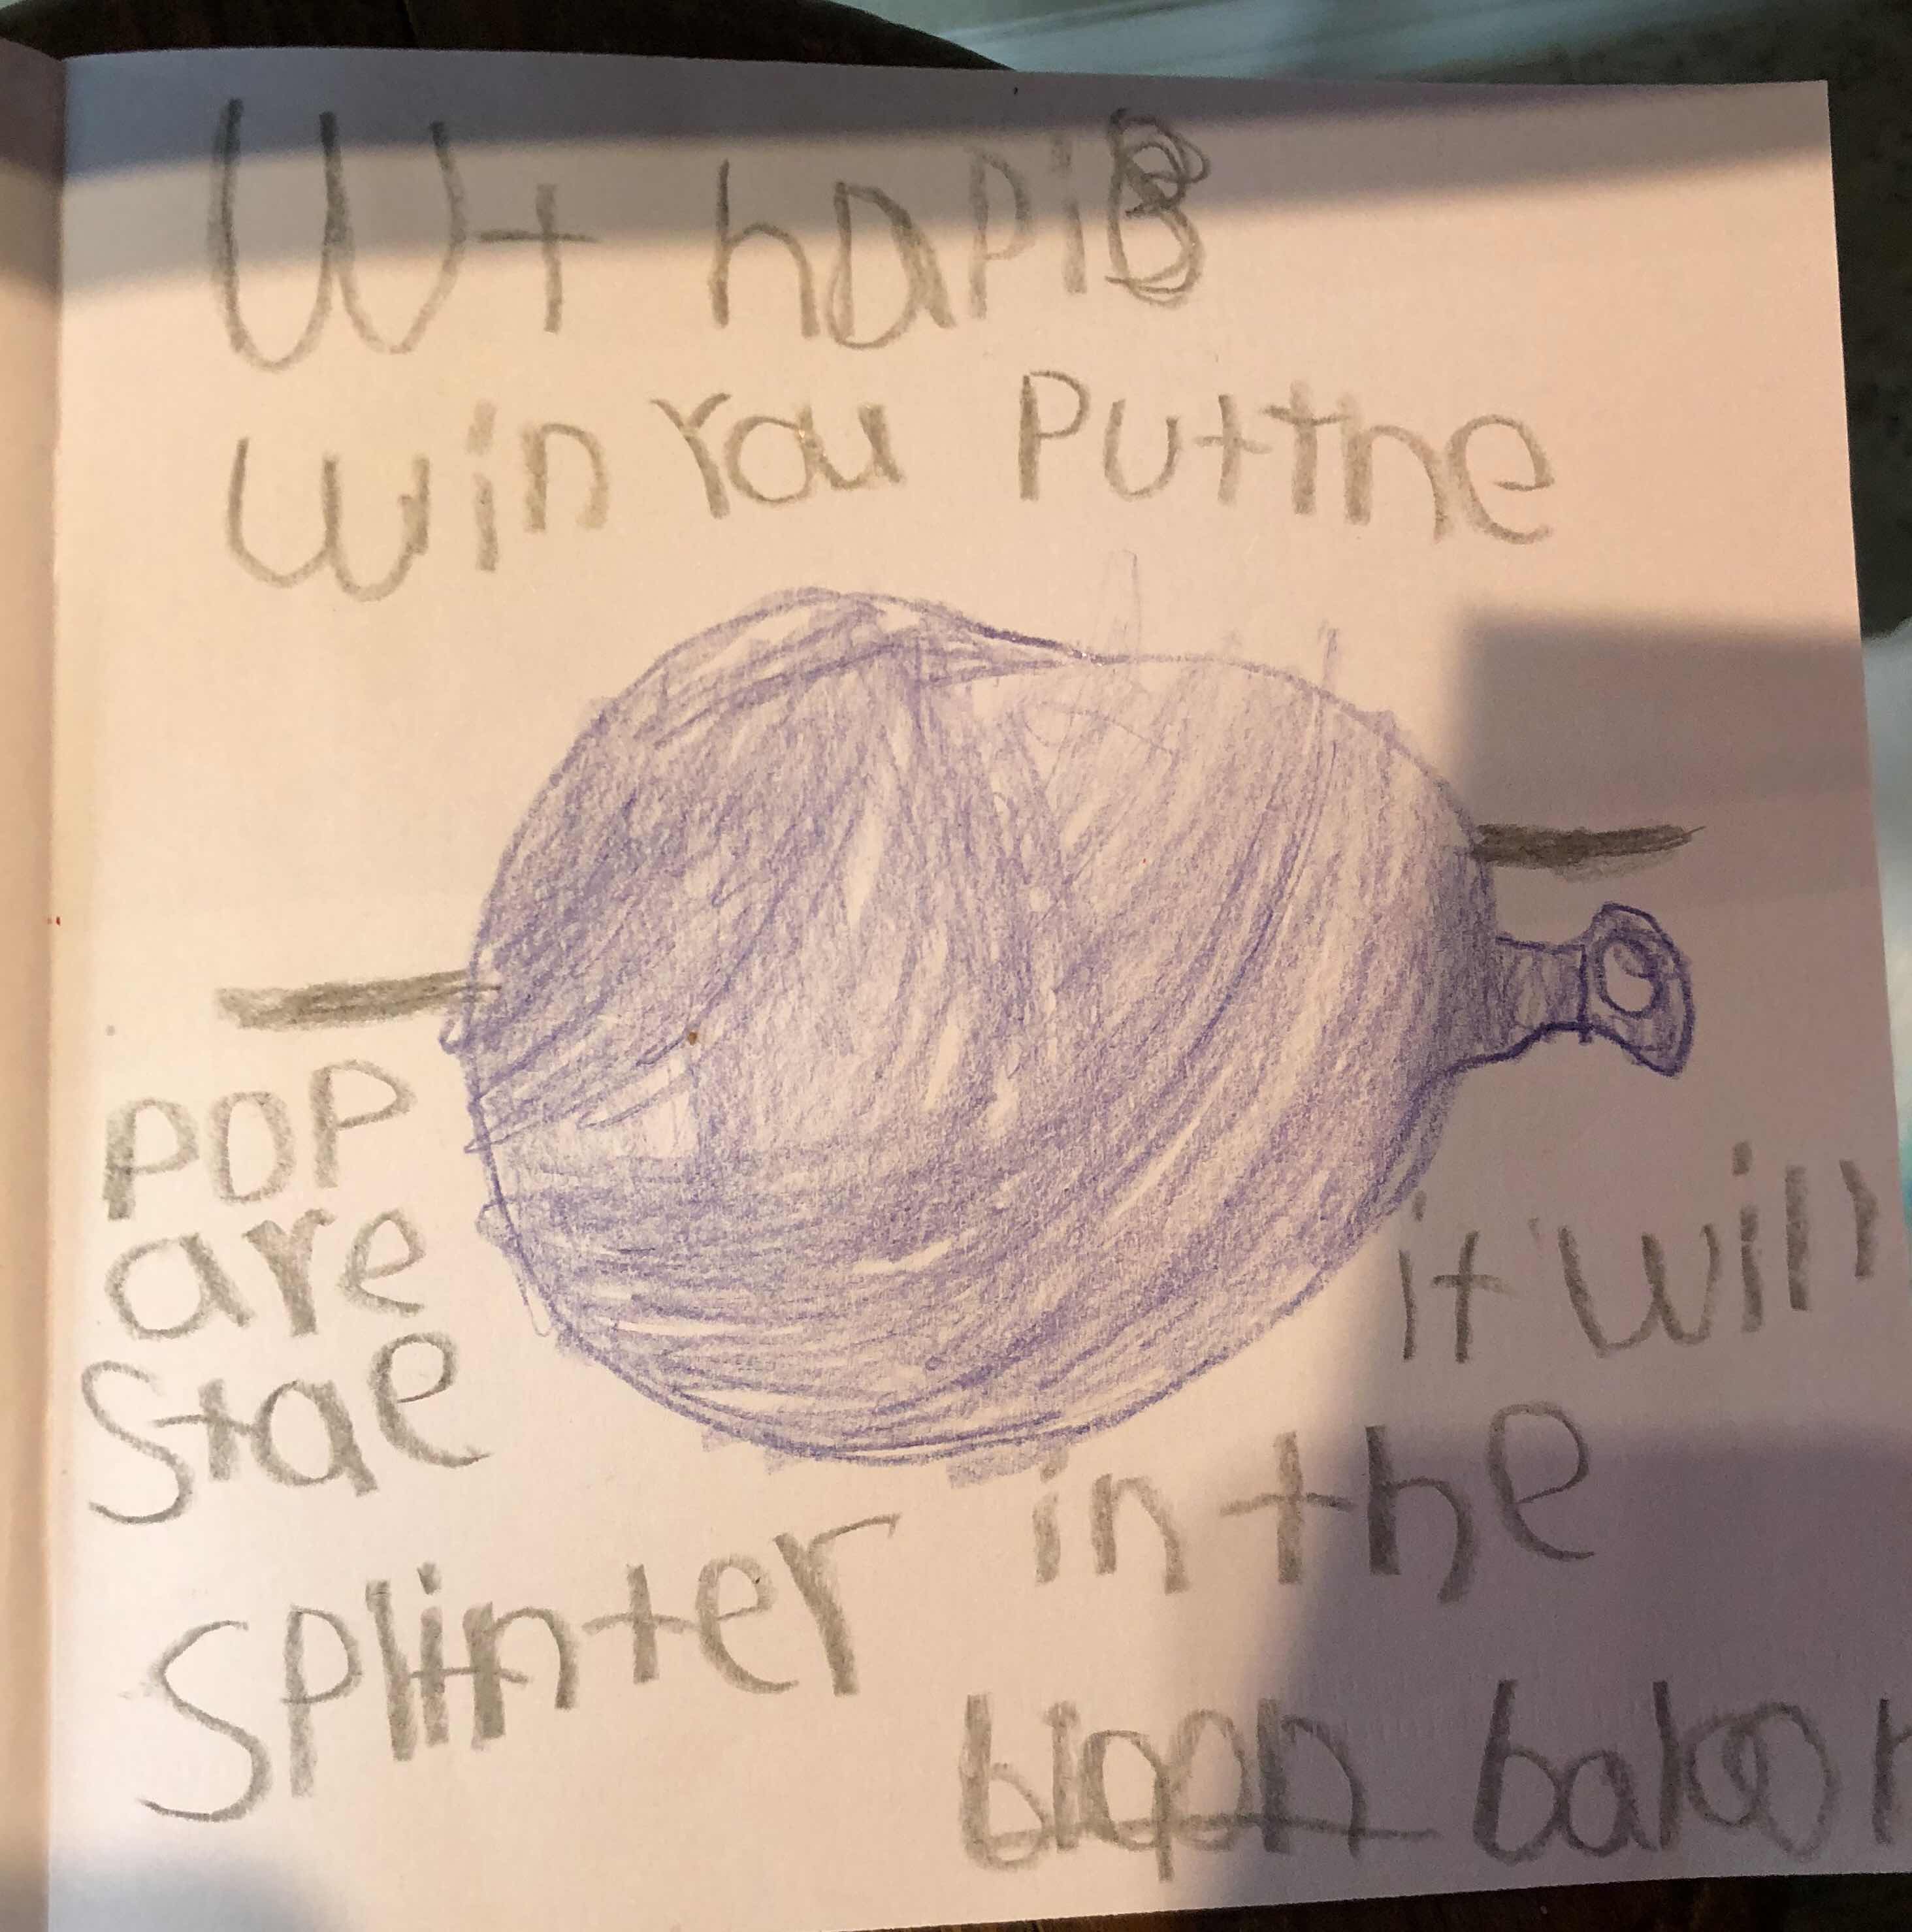 Wt hapi
win you Put the
POP
are
Stae
Splinter
it will
in the
baloon